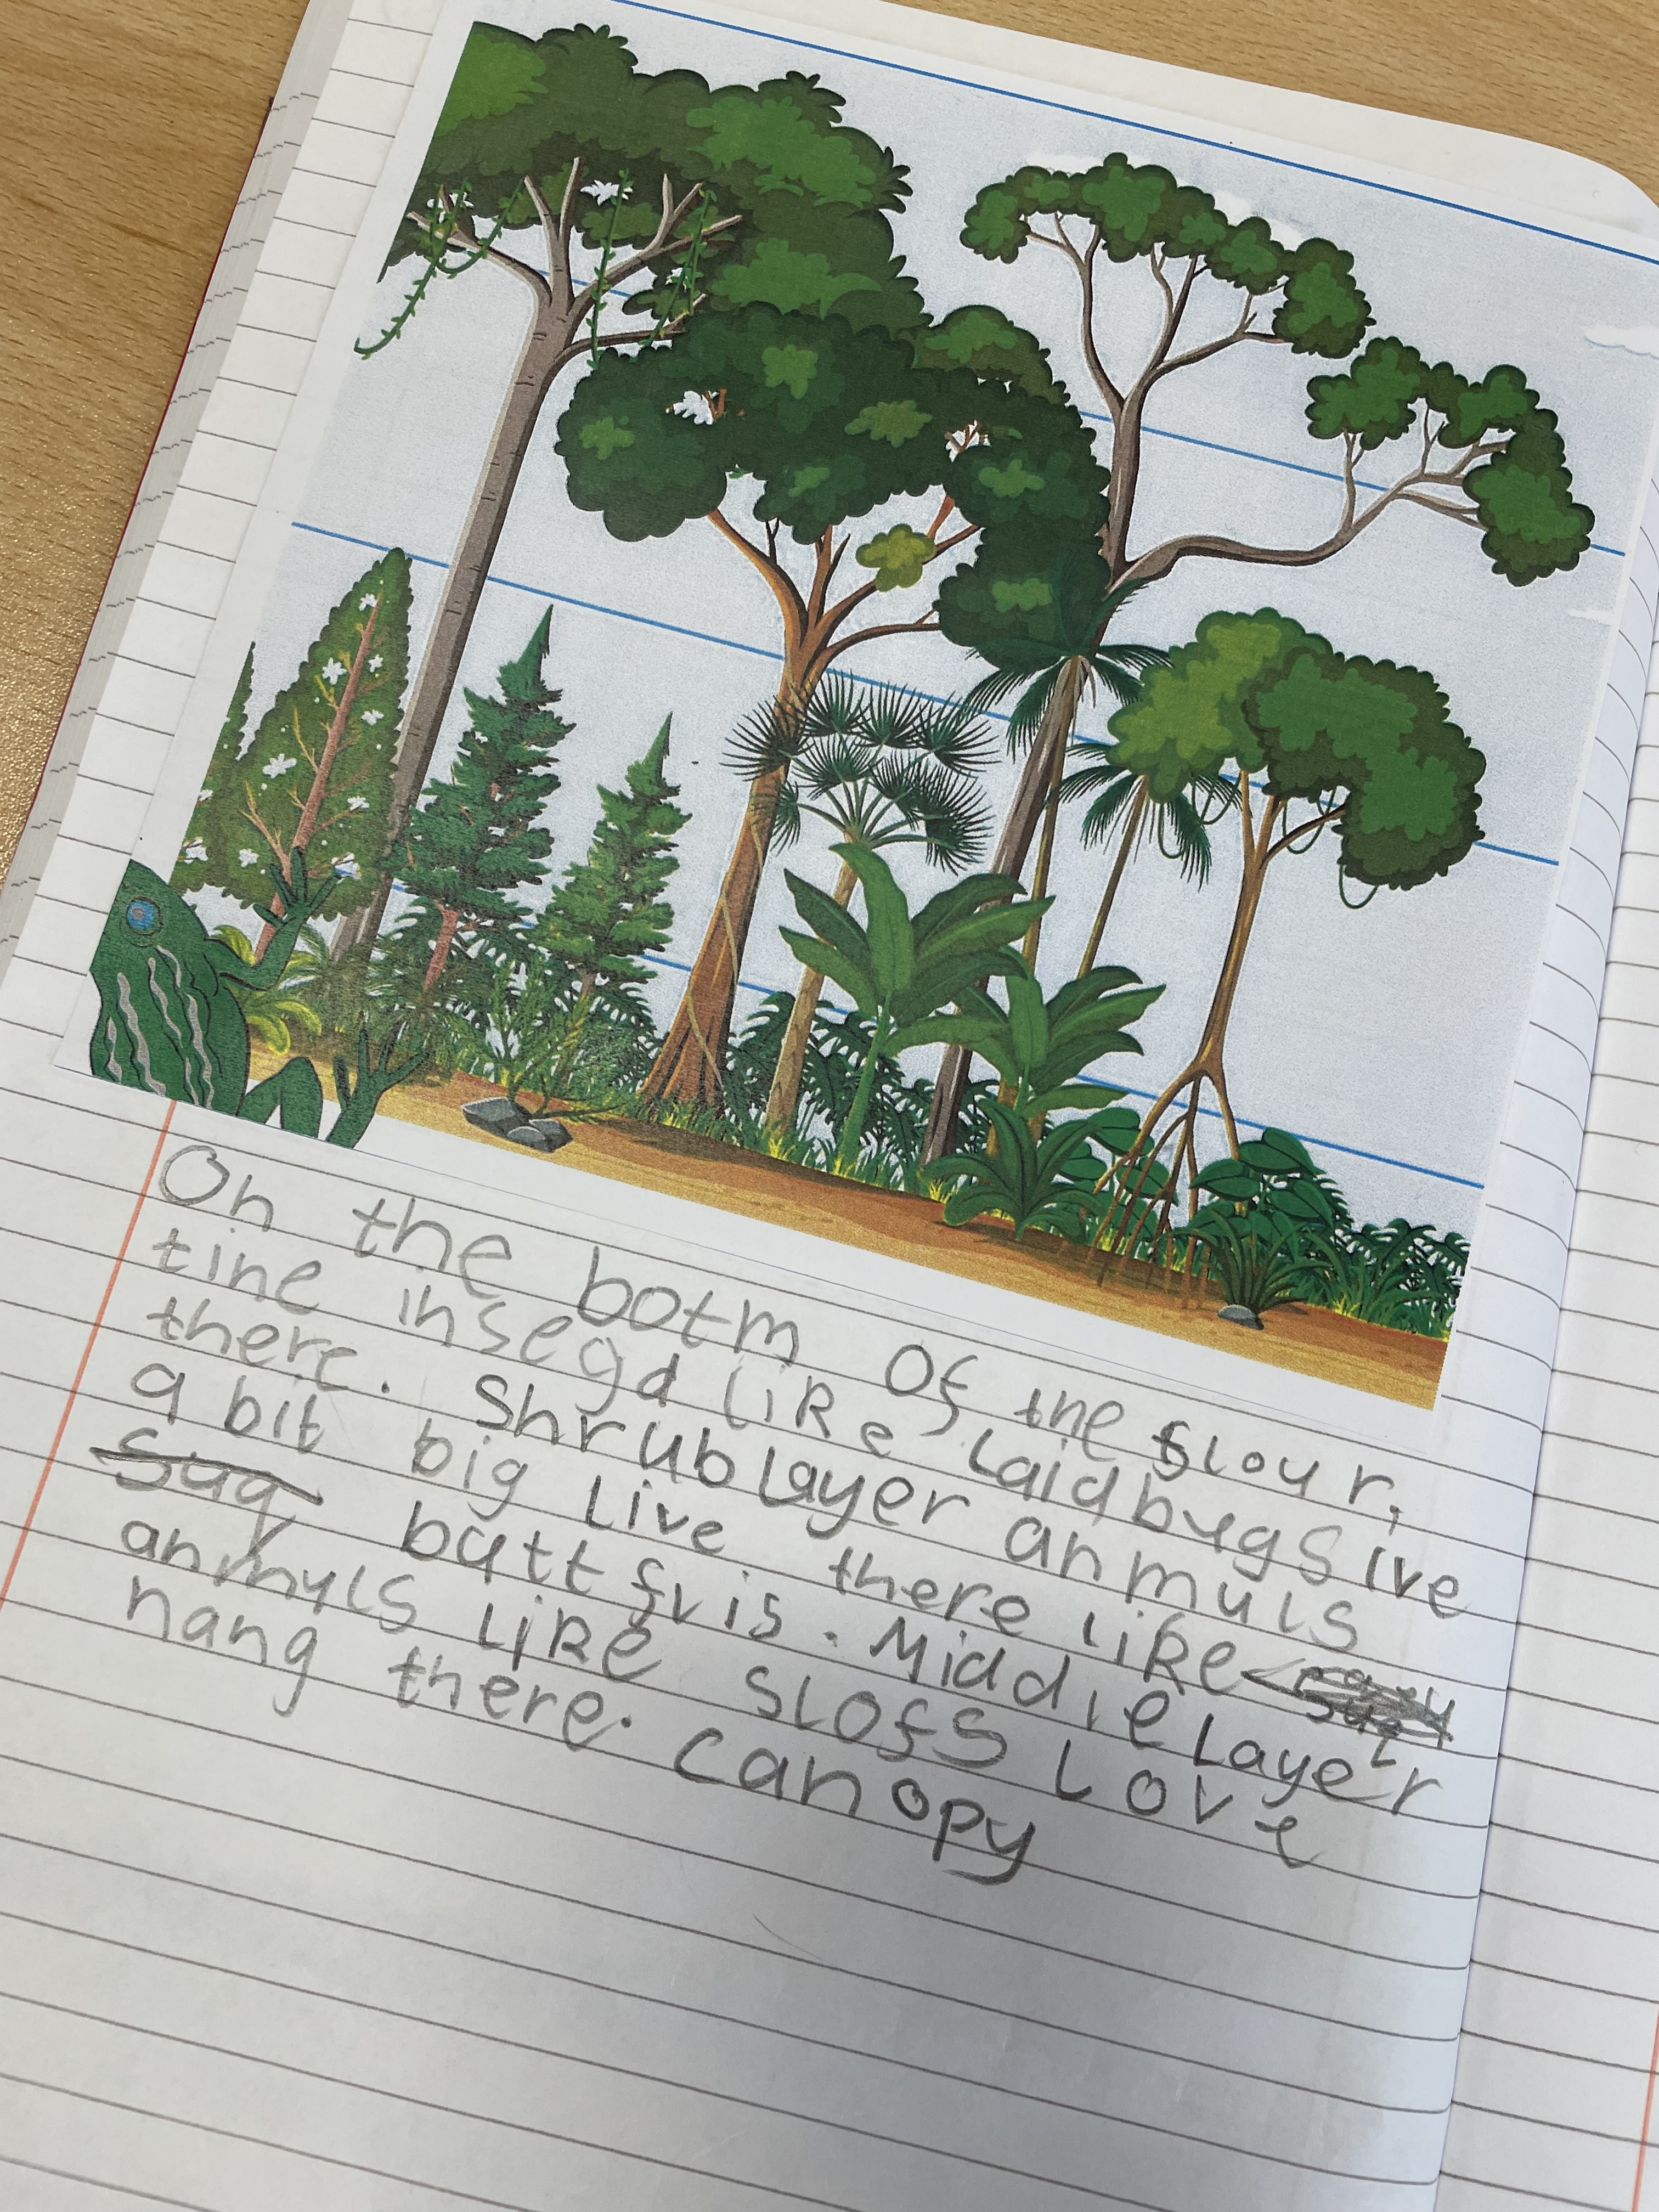 On the botm of the flour,
tine insegd like laidbugs ive
there. Shrub layer anmuls
a bit big live there like
battfvis. Middle Layer
anmyls like slofs Love
hang there. canopy